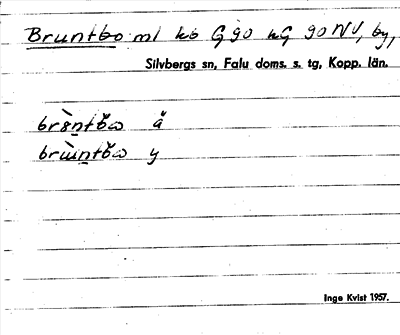 Bruntbo ml kö G 90 NG 90 NV, by,
Silvbergs sn, Falu doms. s. tg, Kopp. län.
brɵ̀ntbω å
brɯ̀ntbω y
Inge Kvist 1957.